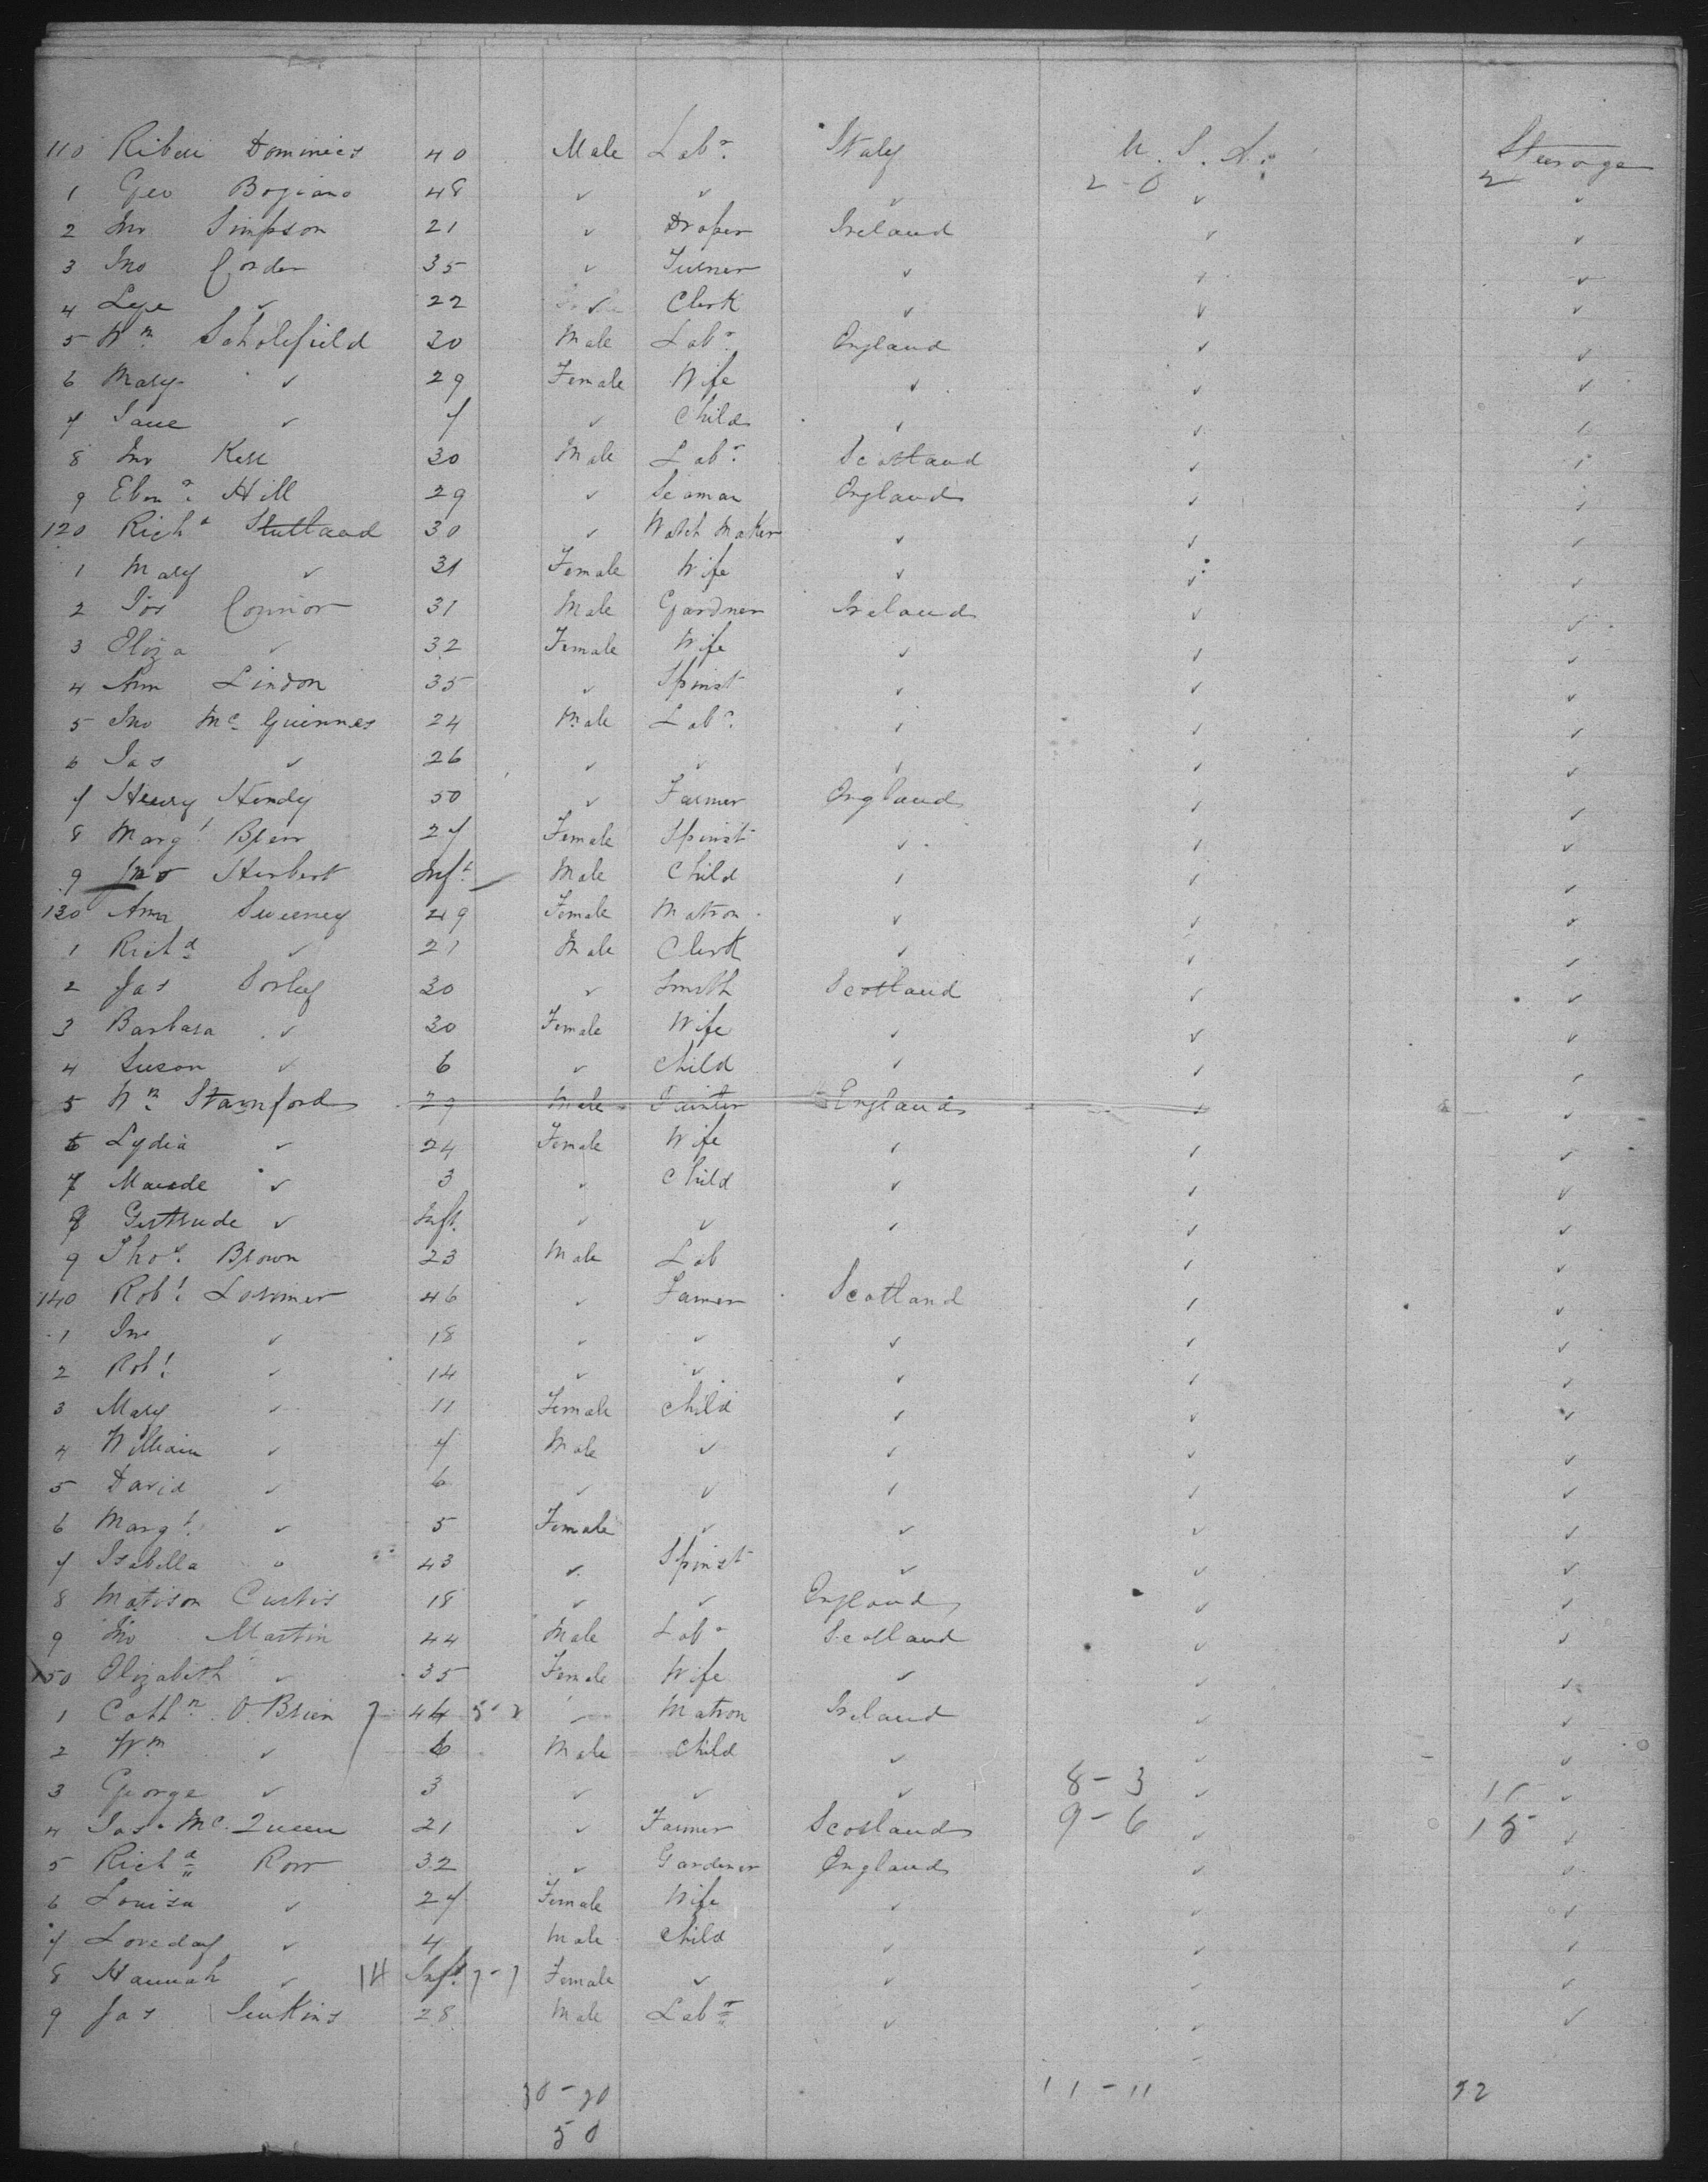 110 Riberi Dominics 40 Male Labr. Italy U. S. A. Steerage
1 Geo Bogiano 48 ✓ ✓ ✓ 2-0 ✓ 2 ✓
2 Jno Simpson 21 ✓ Draper Ireland ✓ ✓
3 Jno Corder 35 ✓ Turner ✓ ✓ ✓
4 ✓ 22 ✓ Clerk ✓ ✓ ✓
5 Wm Scholefield 30 Male Labr. England ✓ ✓
6 Mary ✓ 29 Female Wife ✓ ✓ ✓
7 Jane ✓ 7 ✓ Child ✓ ✓ ✓
8 Jno Kerr 30 Male Labr. Scotland ✓ ✓
9 Ebenr. Hill 29 ✓ Seaman England ✓ ✓
120 Richd Stuttaad 30 ✓ Watch Maker ✓ ✓ ✓
1 Mary ✓ 31 Female Wife ✓ ✓ ✓
2 Jos Connor 31 Male Gardner Ireland ✓ ✓
3 Eliza ✓ 32 Female Wife ✓ ✓ ✓
4 Ann Lindon 35 ✓ Spinst ✓ ✓ ✓
5 Jno Mc Guinnes 24 Male Labr. ✓ ✓ ✓
6 Jas ✓ 26 ✓ ✓ ✓ ✓ ✓
7 Henry Hendy 50 ✓ Farmer England ✓ ✓
8 Margt. 27 Female Spinst ✓ ✓ ✓
9 Jno Herbert Inft. Male Child ✓ ✓ ✓
130 Ann Sweeney 49 Female Matron ✓ ✓ ✓
1 Richd ✓ 21 Male Clerk ✓ ✓ ✓
2 Jas Sorley 30 ✓ Smith Scotland ✓ ✓
3 Barbara ✓ 30 Female Wife ✓ ✓ ✓
4 Suson ✓ 6 ✓ Child ✓ ✓ ✓
5 Wm Stamford 29 Male Painter England ✓ ✓
6 Lydia ✓ 24 Female Wife ✓ ✓ ✓
7 Maude ✓ 3 ✓ Child ✓ ✓ ✓
8 Gertrude ✓ Inft. ✓ ✓ ✓ ✓ ✓
9 Thos. Brown 23 Male Lab ✓ ✓
140 Robt. Lorimer 46 ✓ Farmer Scotland ✓ ✓
1 Jno ✓ 18 ✓ ✓ ✓ ✓ ✓
2 Robt. ✓ 14 ✓ ✓ ✓ ✓ ✓
3 Mary ✓ 11 Female Child ✓ ✓ ✓
4 William ✓ 7 Male ✓ ✓ ✓ ✓
5 David ✓ 6 ✓ ✓ ✓ ✓ ✓
6 Margt. ✓ 5 Female ✓ ✓ ✓ ✓
7 Isabella ✓ 43 ✓ Spinst ✓ ✓ ✓
8 Matison Curtis 18 ✓ ✓ England ✓ ✓
9 Jno Martin 44 Male Labr Scotland ✓ ✓
150 Elizabeth ✓ 35 Female Wife ✓ ✓ ✓
1 Cathn. O'Brien 44 ✓ Matron Ireland ✓ ✓
2 Wm ✓ 6 Male Child ✓ ✓ ✓
3 George ✓ 3 ✓ ✓ ✓ 8-3 ✓ 11 ✓
4 Jas. Mc. Queen 21 ✓ Farmer Scotland 9-6 ✓ 15 ✓
5 Richd Row 32 ✓ Gardener England ✓ ✓
6 Louisa ✓ 27 Female Wife ✓ ✓ ✓
7 Loveday ✓ 4 Male Child ✓ ✓ ✓
8 Hannah ✓ 14 Inft. 7-7 Female ✓ ✓ ✓ ✓
9 Jas Jenkins 28 Male Labr ✓ ✓ ✓
30-20 11-11 52
50